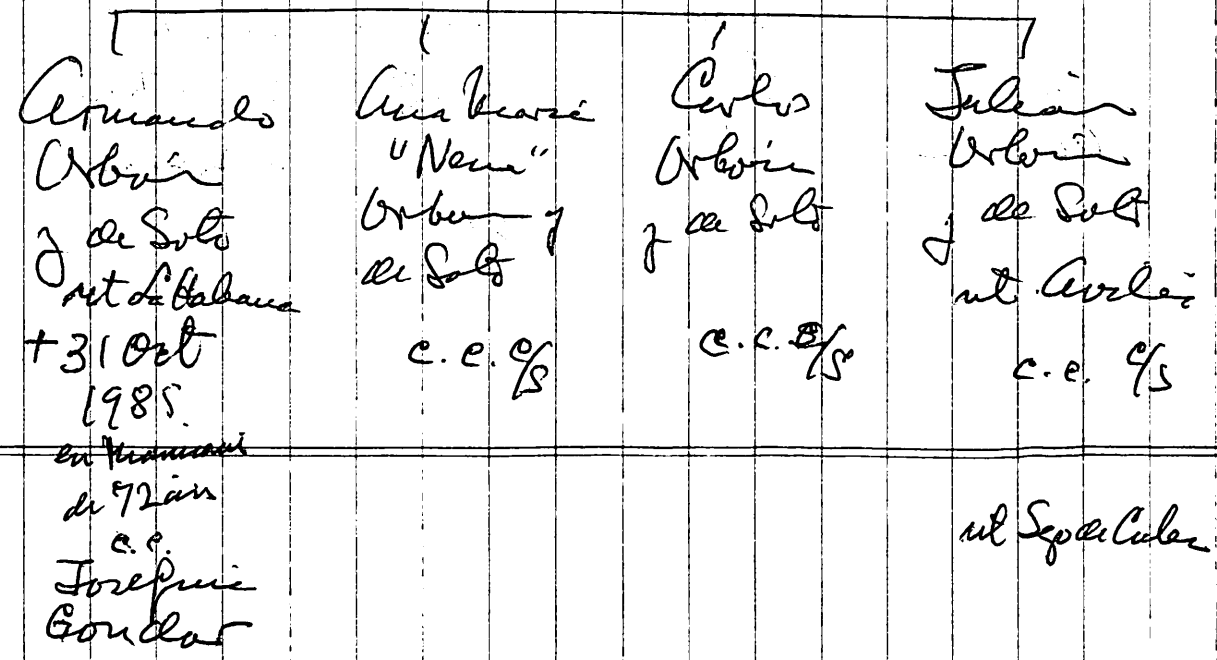 Armando
Orbón
y de Soto
nat La Habana
+31 Oct
1985.
en Miami
de 72 años
c.c.
Josefina
Gondar
Ana María
"Nena"
Orbon y
de Soto
c.c. c/s
Carlos
Orbón
y de Soto
c.c. c/s
Julián
Orbón
y de Soto
nat. Avilés
c.c. c/s
nat Sgo de Cuba